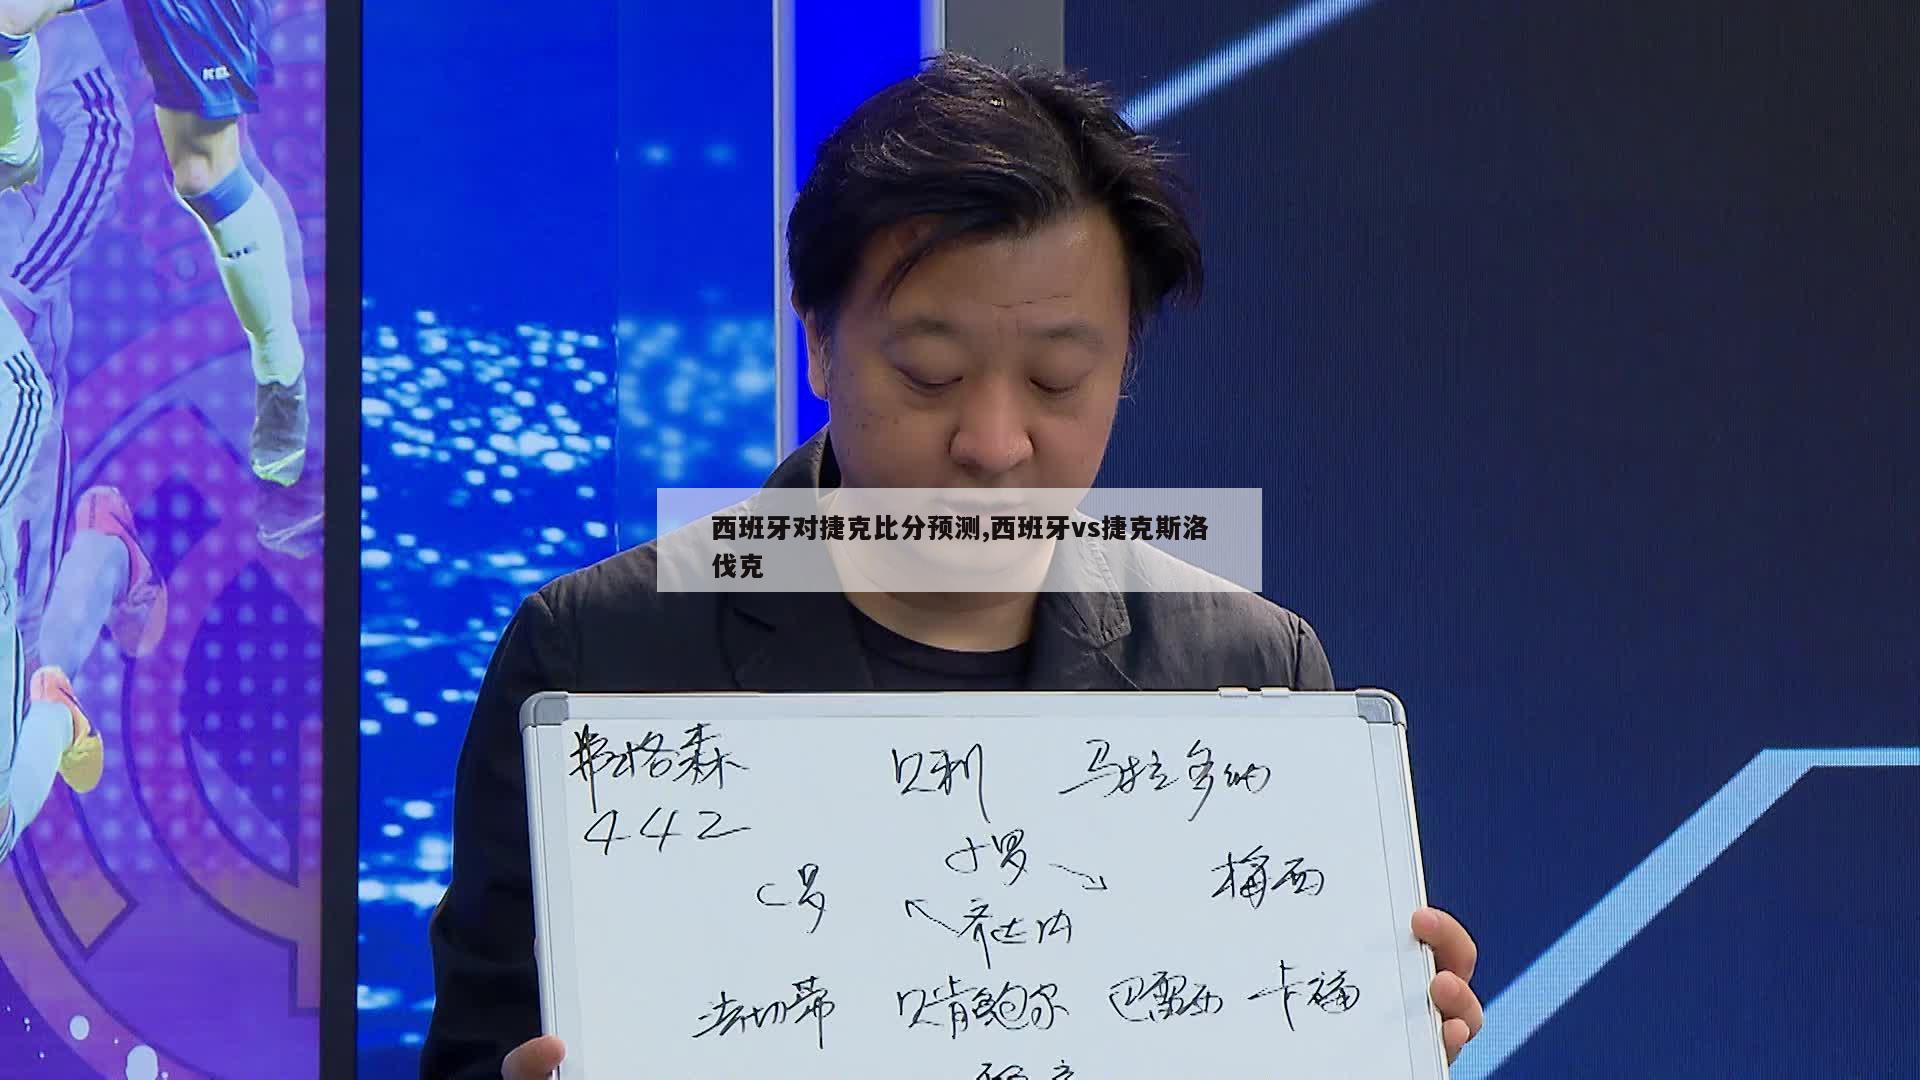 西班牙对捷克比分预测,西班牙vs捷克斯洛
伐克
弗格森 贝利 马拉多纳
442
小罗
C罗 梅西
齐达内
法切蒂 贝肯鲍尔 巴雷西 卡福